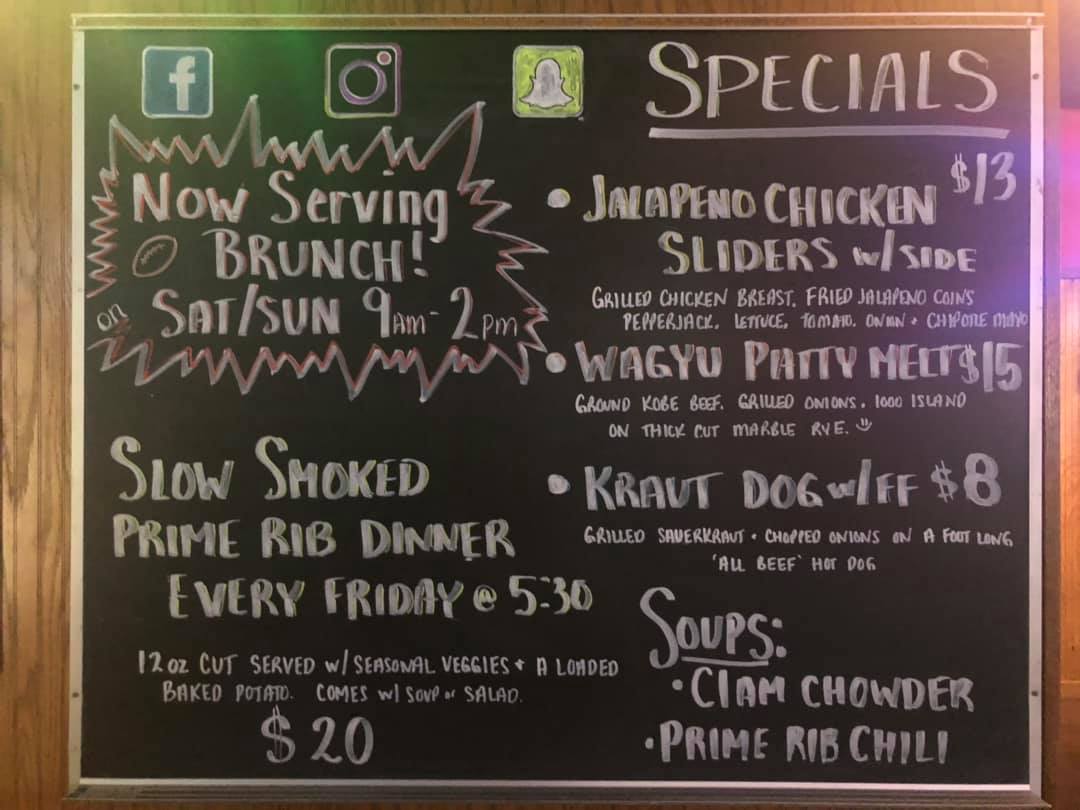 f
Now Serving
BRUNCH!
on SAT/SUN 9AM-2pm
SLOW SMOKED
PRIME RIB DINNER
EVERY FRIDAY @ 5:30
12 oz CUT SERVED w/ SEASONAL VEGGIES + A LOADED
BAKED POTATO. COMES w/ SOUP or SALAD.
$20
SPECIALS
• JALAPENO CHICKEN $13
SLIDERS w/ SIDE
GRILLED CHICKEN BREAST, FRIED JALAPENO COINS
PEPPERJACK, LETTUCE, TOMATO, ONION + CHIPOTLE MAYO
• WAGYU PATTY MELT $15
GROUND KOBE BEEF, GRILLED ONIONS, 1000 ISLAND
ON THICK CUT MARBLE RYE.
• KRAUT DOG w/FF $8
GRILLED SAUERKRAUT + CHOPPED ONIONS ON A FOOT LONG
'ALL BEEF' HOT DOG
SOUPS:
• CLAM CHOWDER
• PRIME RIB CHILI